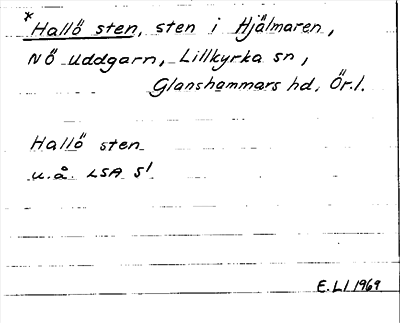 * Hallö sten, sten i Hjälmaren,
NÖ Uddgarn, Lillkyrka sn,
Glanshammars hd, Ör.l.
Hallö sten
u.å. LSA S1
E.LI 1969